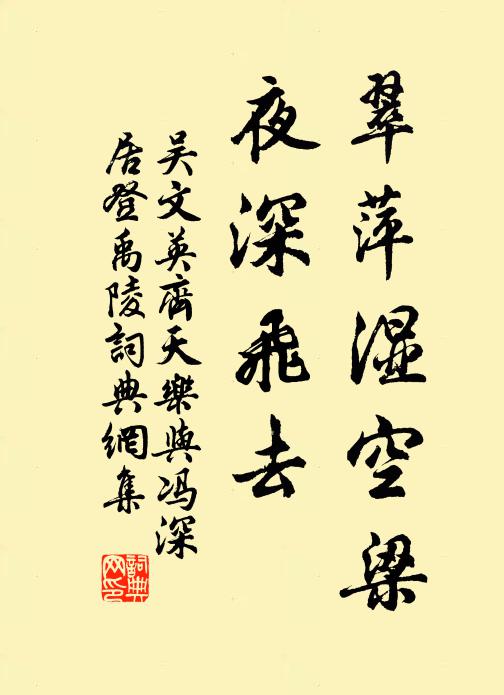 翠萍濕空梁
夜深飛去
吴文英齊天樂與冯深
居登禹陵詞典網集
詞典
网印